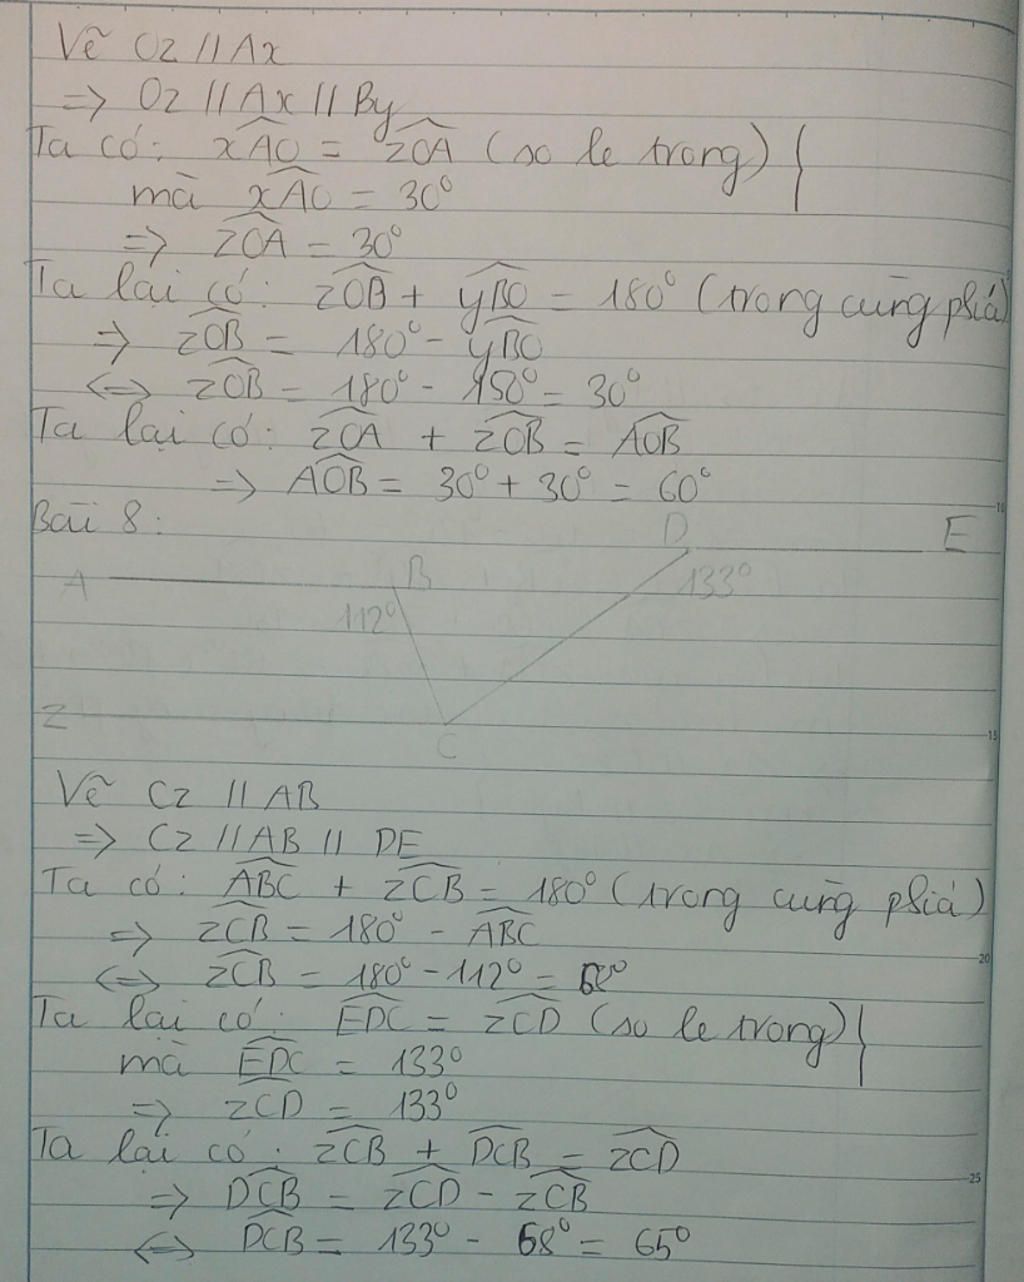 Vẽ Oz // Ax
=> Oz // Ax // By
Ta có: xAO = zOA (so le trong) }
mà xAO = 30°
=> zOA = 30°
Ta lại có: zOB + yBO = 180° (trong cùng phía)
=> zOB = 180° - yBO
<=> zOB = 180° - 150° = 30°
Ta lại có: zOA + zOB = AOB
=> AOB = 30° + 30° = 60°
Bài 8:
D E
A B 133°
112°
z
C
Vẽ Cz // AB
=> Cz // AB // DE
Ta có: ABC + zCB = 180° (trong cùng phía)
=> zCB = 180° - ABC
<=> zCB = 180° - 112° = 68°
Ta lại có: EDC = zCD (so le trong) }
mà EDC = 133°
=> zCD = 133°
Ta lại có: zCB + DCB = zCD
=> DCB = zCD - zCB
<=> DCB = 133° - 68° = 65°
10
15
20
25